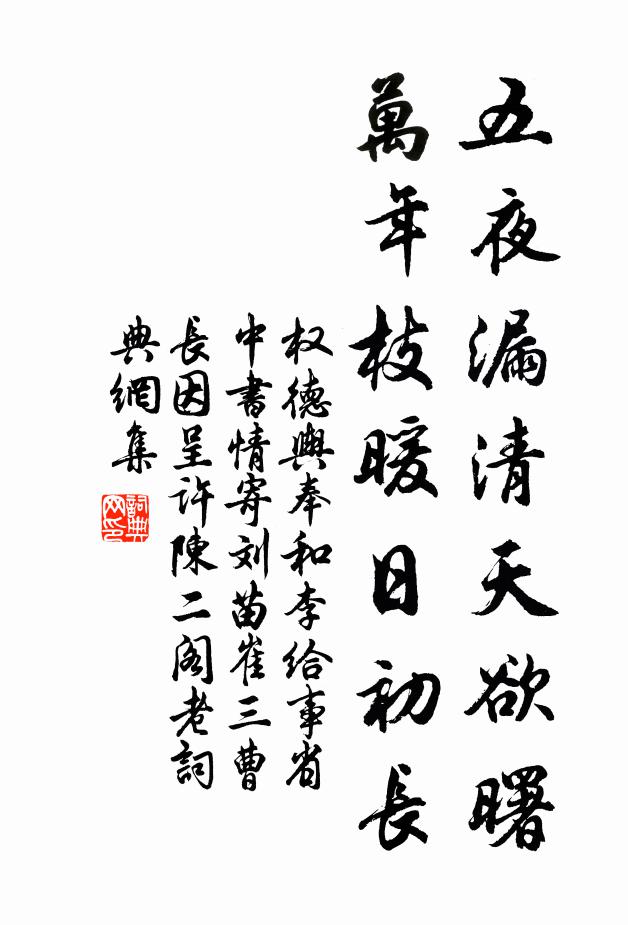 五夜漏清天欲曙
萬年枝暖日初長
权德輿奉和李给事省
中書情寄刘苗崔三曹
長因呈许陳二阁老詞
典網集
詞典网印